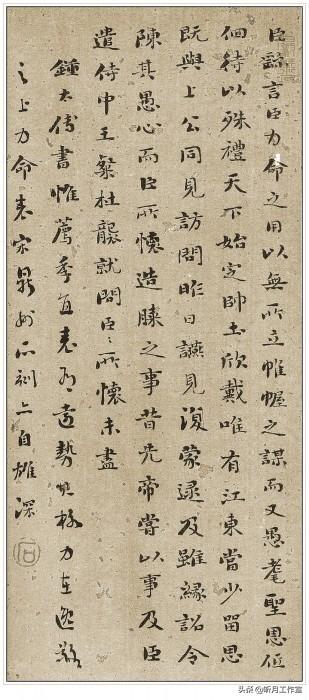 臣繇言臣力命之用以無所立帷幄之謀而又愚耄聖恩低
佪待以殊禮天下始定帥土欣戴唯有江東當少留思
既與上公同見訪問昨日讌見復蒙逮及雖緣詔令
陳其愚心而臣所懷造膝之事昔先帝嘗以事及臣
遣侍中王粲杜襲就問臣〻所懷未盡
鍾太傅書惟薦季直表勢力在
之上力命表宋所刻亦自雄深
头条 @听月工作室